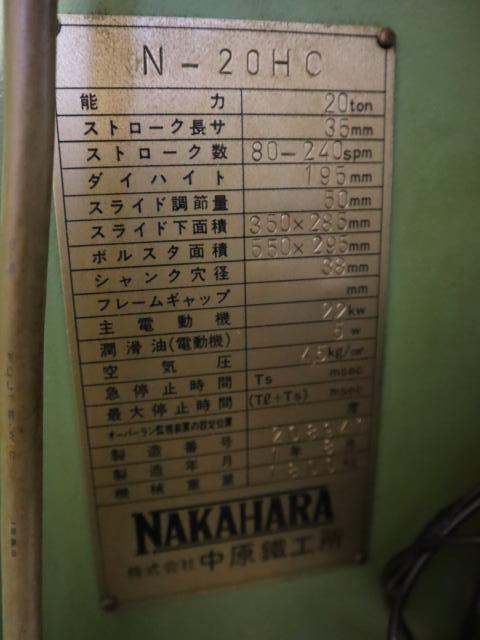 N-20HC
能力 20ton
ストローク長サ 35mm
ストローク数 80-240spm
ダイハイト 195mm
スライド調節量 50mm
スライド下面積 350×285mm
ボルスタ面積 550×295mm
シャンク穴径 38mm
フレームギャップ mm
主電動機 22kw
潤滑油(電動機) w
空気圧 4.5kg/cm²
急停止時間 Ts msec
最大停止時間 (Tl+Ts) msec
オーバーラン監視装置の設定位置 度
製造番号
製造年月 年 月
機械重量
NAKAHARA
株式会社 中原鐵工所